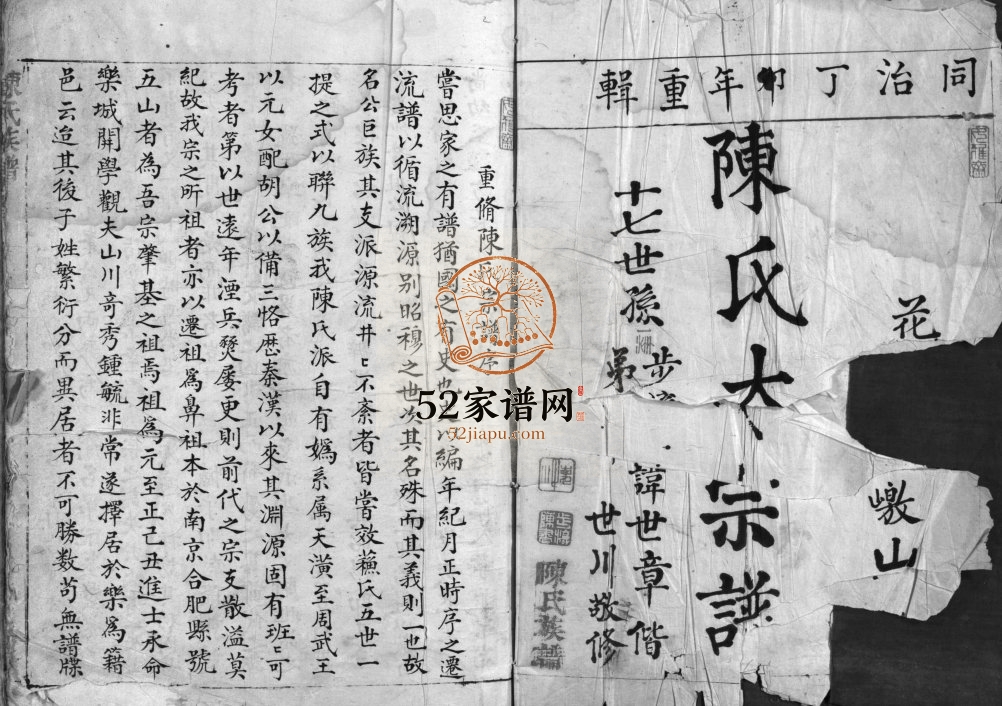 同治丁卯年重輯
花
嶩山
陳氏大宗譜
十七世孫
步
諱世章偕
弟
世川敬修
陳氏族譜
重脩陳氏宗譜序
嘗思家之有譜猶國之有史也以編年紀月正時序之遷
流譜以循流溯源别昭穆之世次其名殊而其義則一也故
名公巨族其支派源流井〻不紊者皆嘗效蘓氏五世一
提之式以聯九族我陳氏派自有嬀系属天潢至周武王
以元女配胡公以備三恪歷秦漢以來其淵源固有班〻可
考者第以世遠年湮兵燹屡更則前代之宗支散溢莫
紀故我宗之所祖者亦以遷祖爲鼻祖本於南京合肥縣號
五山者為吾宗肇基之祖焉祖為元至正己丑進士承命
樂城開學觀夫山川竒秀鍾毓非常遂擇居於樂爲籍
邑云迨其後子姓繁衍分而異居者不可勝数苟無譜牒
52家谱网
52jiapu.com